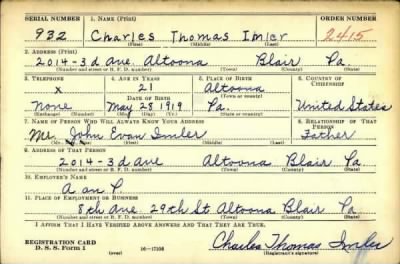 SERIAL NUMBER 1. NAME (Print) ORDER NUMBER
932 Charles Thomas Imler 2415
(First) (Middle) (Last)
2. ADDRESS (Print)
2014-3d Ave. Altoona Blair Pa.
(Number and street or R. F. D. number) (Town) (County) (State)
3. TELEPHONE 4. AGE IN YEARS 5. PLACE OF BIRTH 6. COUNTRY OF CITIZENSHIP
x 21 Altoona
DATE OF BIRTH (Town or county)
None May 28 1919 Pa. United States
(Exchange) (Number) (Mo.) (Day) (Yr.) (State or country)
7. NAME OF PERSON WHO WILL ALWAYS KNOW YOUR ADDRESS 8. RELATIONSHIP OF THAT PERSON
Mr. John Evan Imler Father
(Mr., Mrs., Miss) (First) (Middle) (Last)
9. ADDRESS OF THAT PERSON
2014-3d Ave Altoona Blair Pa
(Number and street or R. F. D. number) (Town) (County) (State)
10. EMPLOYER'S NAME
A on P.
11. PLACE OF EMPLOYMENT OR BUSINESS
8th Ave. 29th St. Altoona Blair Pa
(Number and street or R. F. D. number) (Town) (County) (State)
I AFFIRM THAT I HAVE VERIFIED ABOVE ANSWERS AND THAT THEY ARE TRUE.
REGISTRATION CARD
D. S. S. Form 1 (over) 16-17105 Charles Thomas Imler
(Registrant's signature)